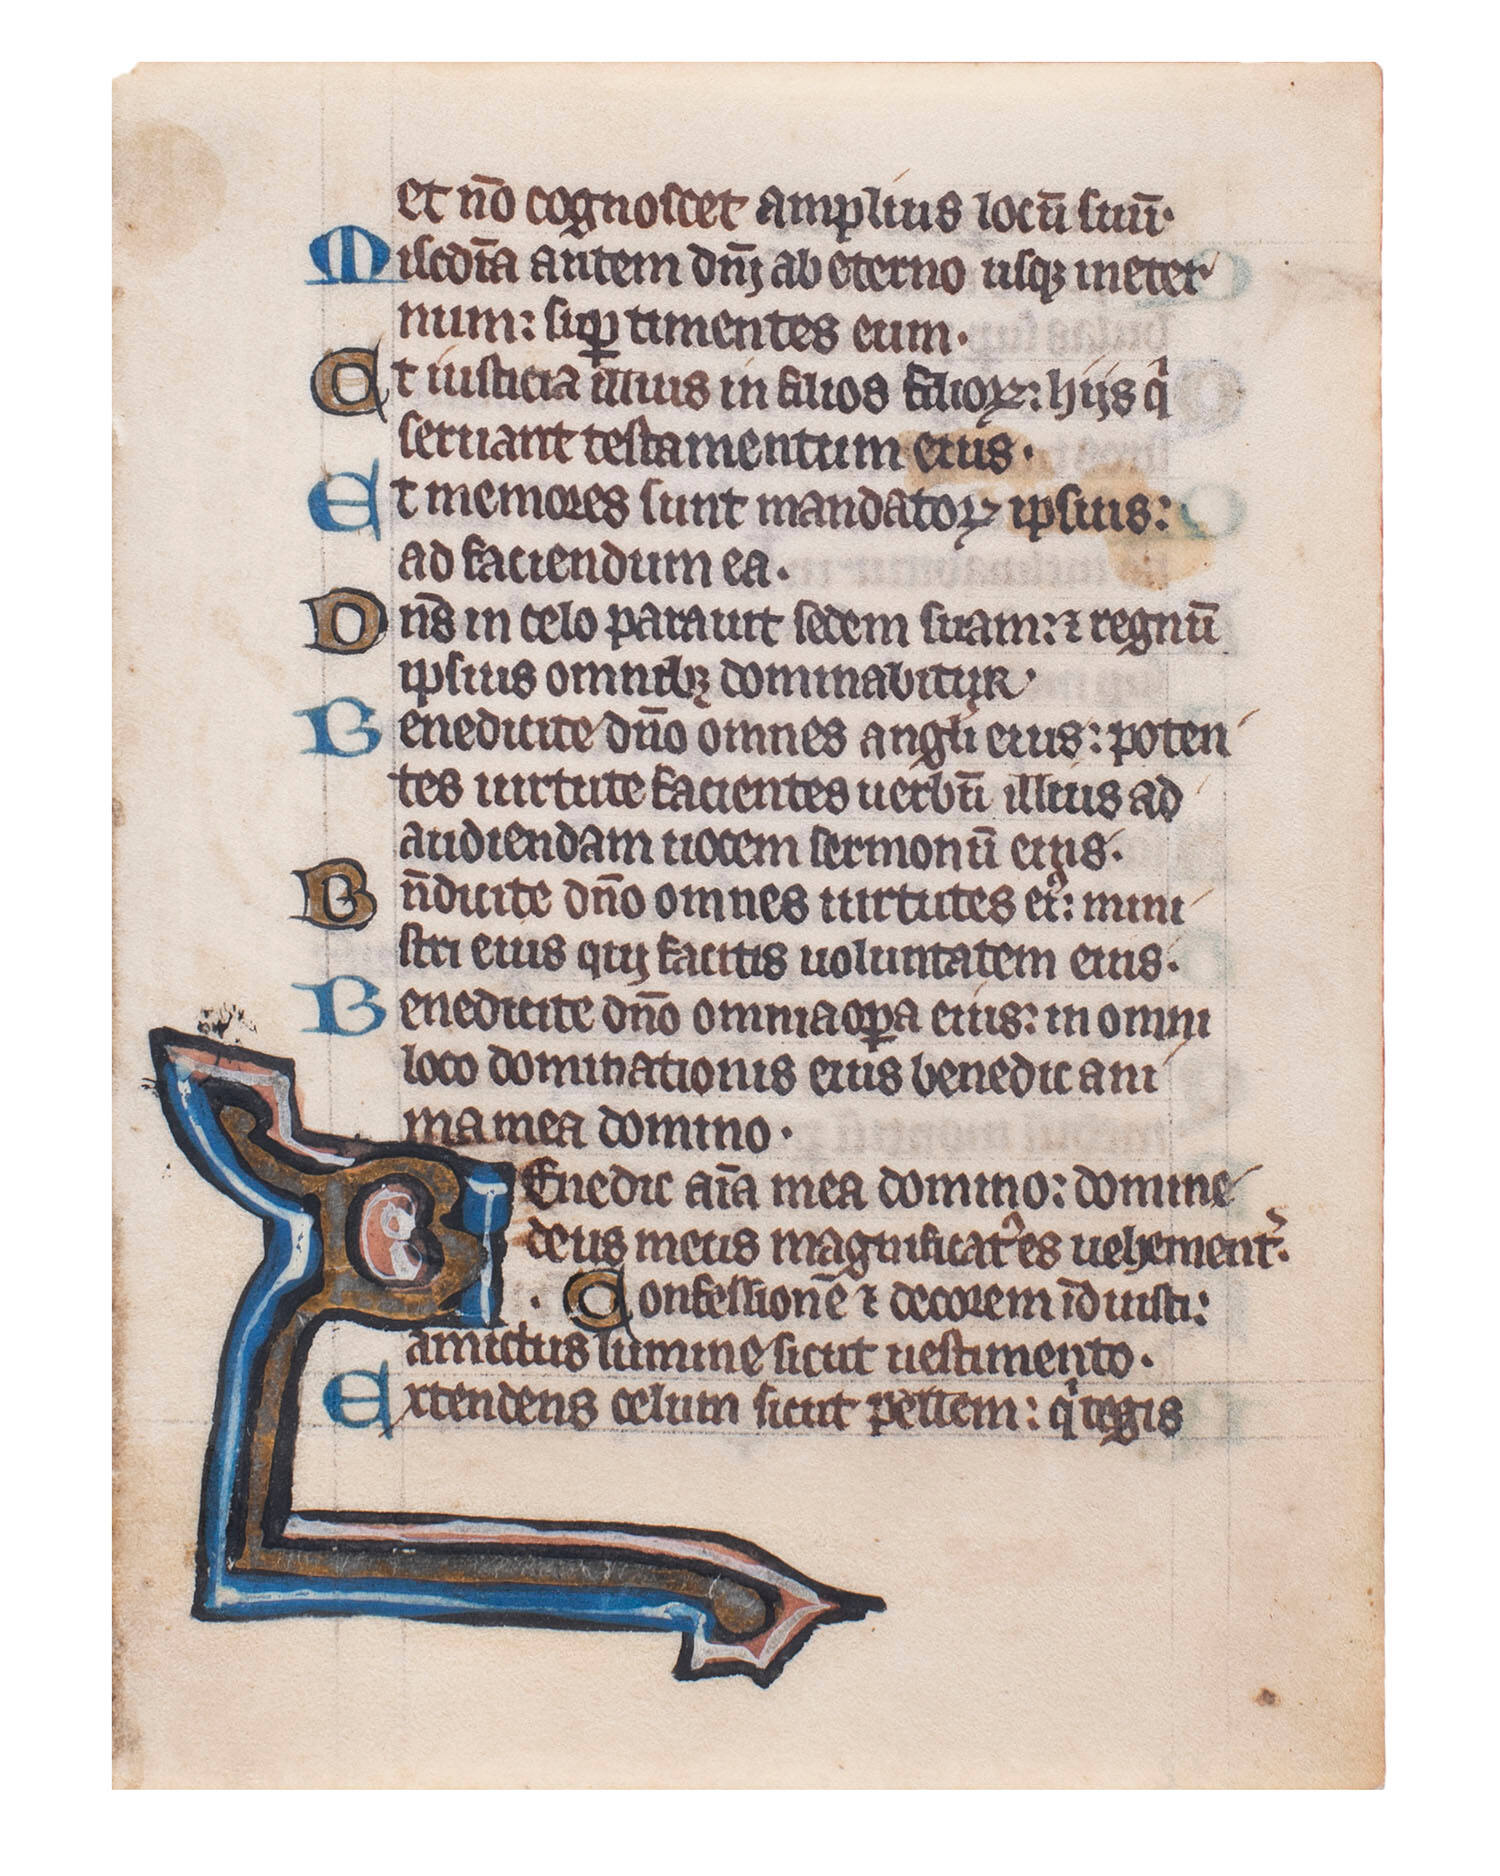 et nō cognoscet amplius locū suū·
Miscdīa autem dn̄j ab eterno usqꝫ in eter
num: suꝑ timentes eum·
Et iusticia illius in filios filioꝝ: hijs qͥ
seruant testamentum eius·
Et memores sunt mandatoꝝ ipsius:
ad faciendum ea·
Dn̄s in celo parauit sedem suam: ⁊ regnū
ipsius omnibꝫ dominabitur·
Benedicite dn̄o omnes angli eius: poten
tes uirtute facientes uerbū illius ad
audiendam uocem sermonū eius·
Bn̄dicite dn̄o omnes uirtutes ei᾽: mini
stri eius qui facitis uoluntatem eius·
Benedicite dn̄o omnia oꝑa eius: in omni
loco dominationis eius benedic ani
ma mea domino·
BEnedic aīa mea domino: domine
deus meus magnificat᾽ es uehement᾽·
· Confessionē ⁊ decorem īduisti:
amictus lumine sicut uestimento·
Extendens celum sicut pellem: qͥ tegis